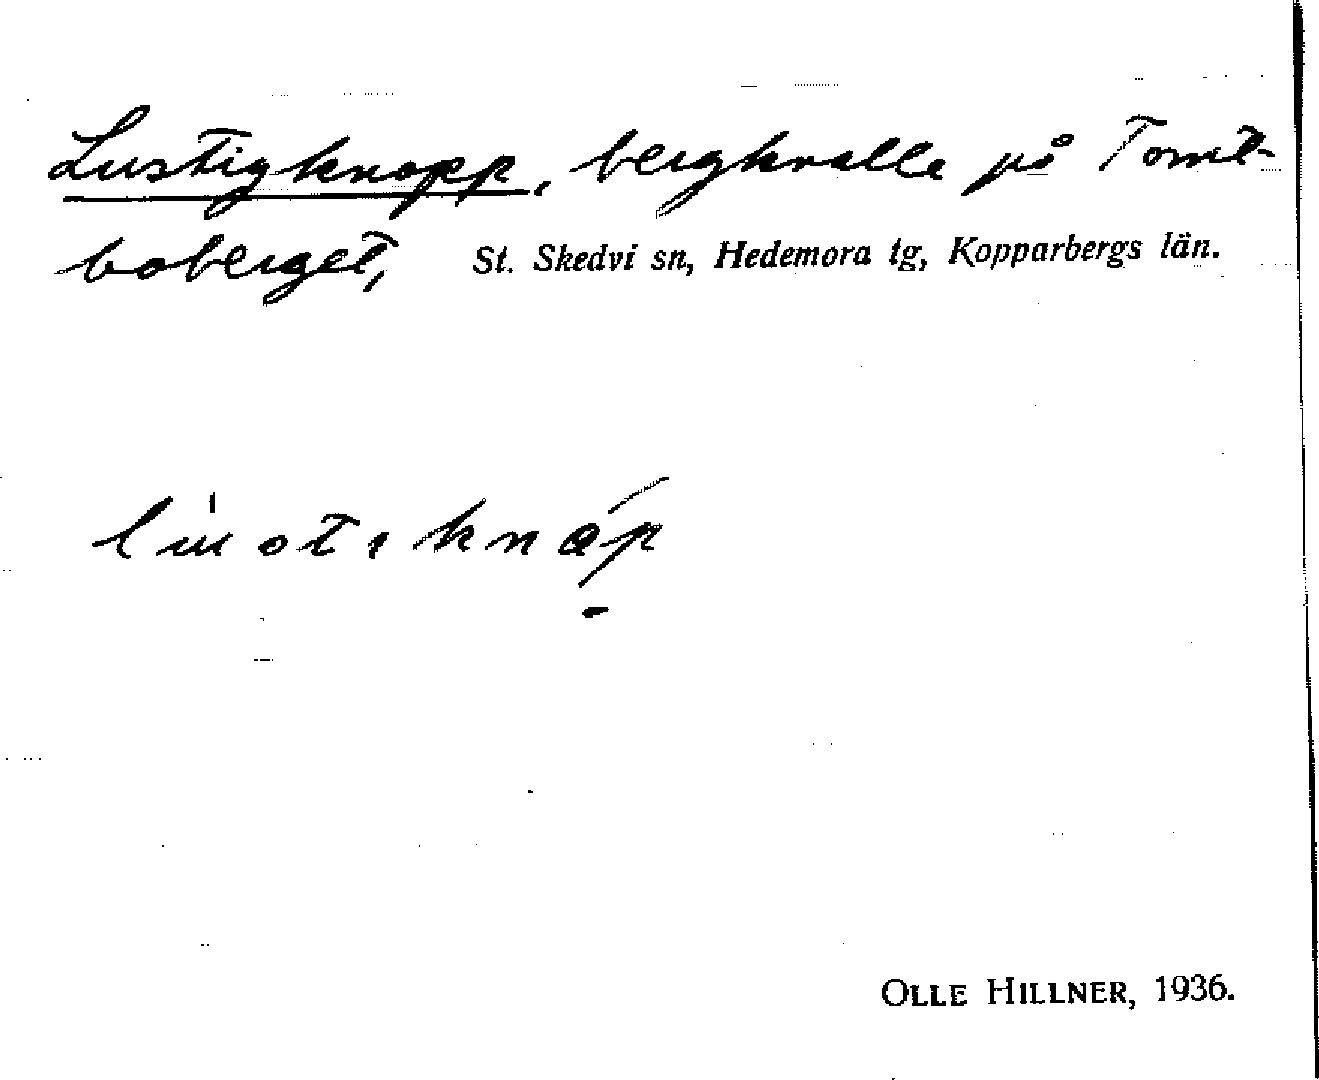 Lustigknopp, bergknalle på Tomt-
boberget, St. Skedvi sn, Hedemora tg, Kopparbergs län.
OLLE HILLNER, 1936.